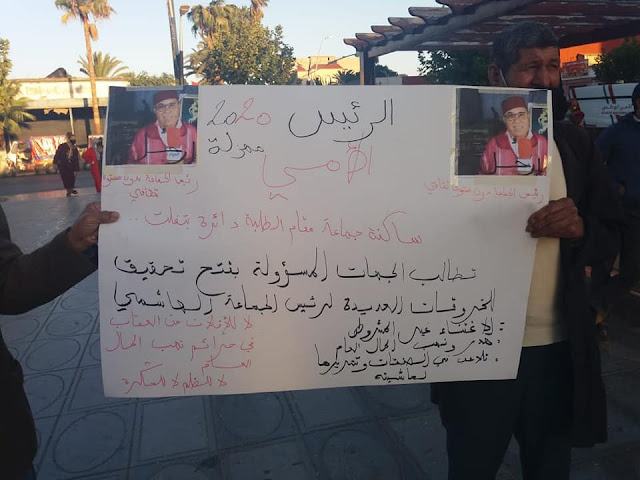 الرئيس 2020
مهزلة
الأمي
رئيس الجماعة بدون مستوى ثقافي
رئيس الجماعة بدون مستوى ثقافي
ساكنة جماعة مقام الطلبة دائرة تيفلت ..
تطالب الجهات المسؤولة بفتح تحقيق
الخروقات العديدة لرئيس الجماعة الهاشمي
- الاغتناء غير المشروع
- هدر ونهب المال العام
- تلاعب في الصفقات وتمريرها
لحاشيته
لا للإفلات من العقاب
في جرائم نهب المال
العام
لا للظلم لا للحكرة